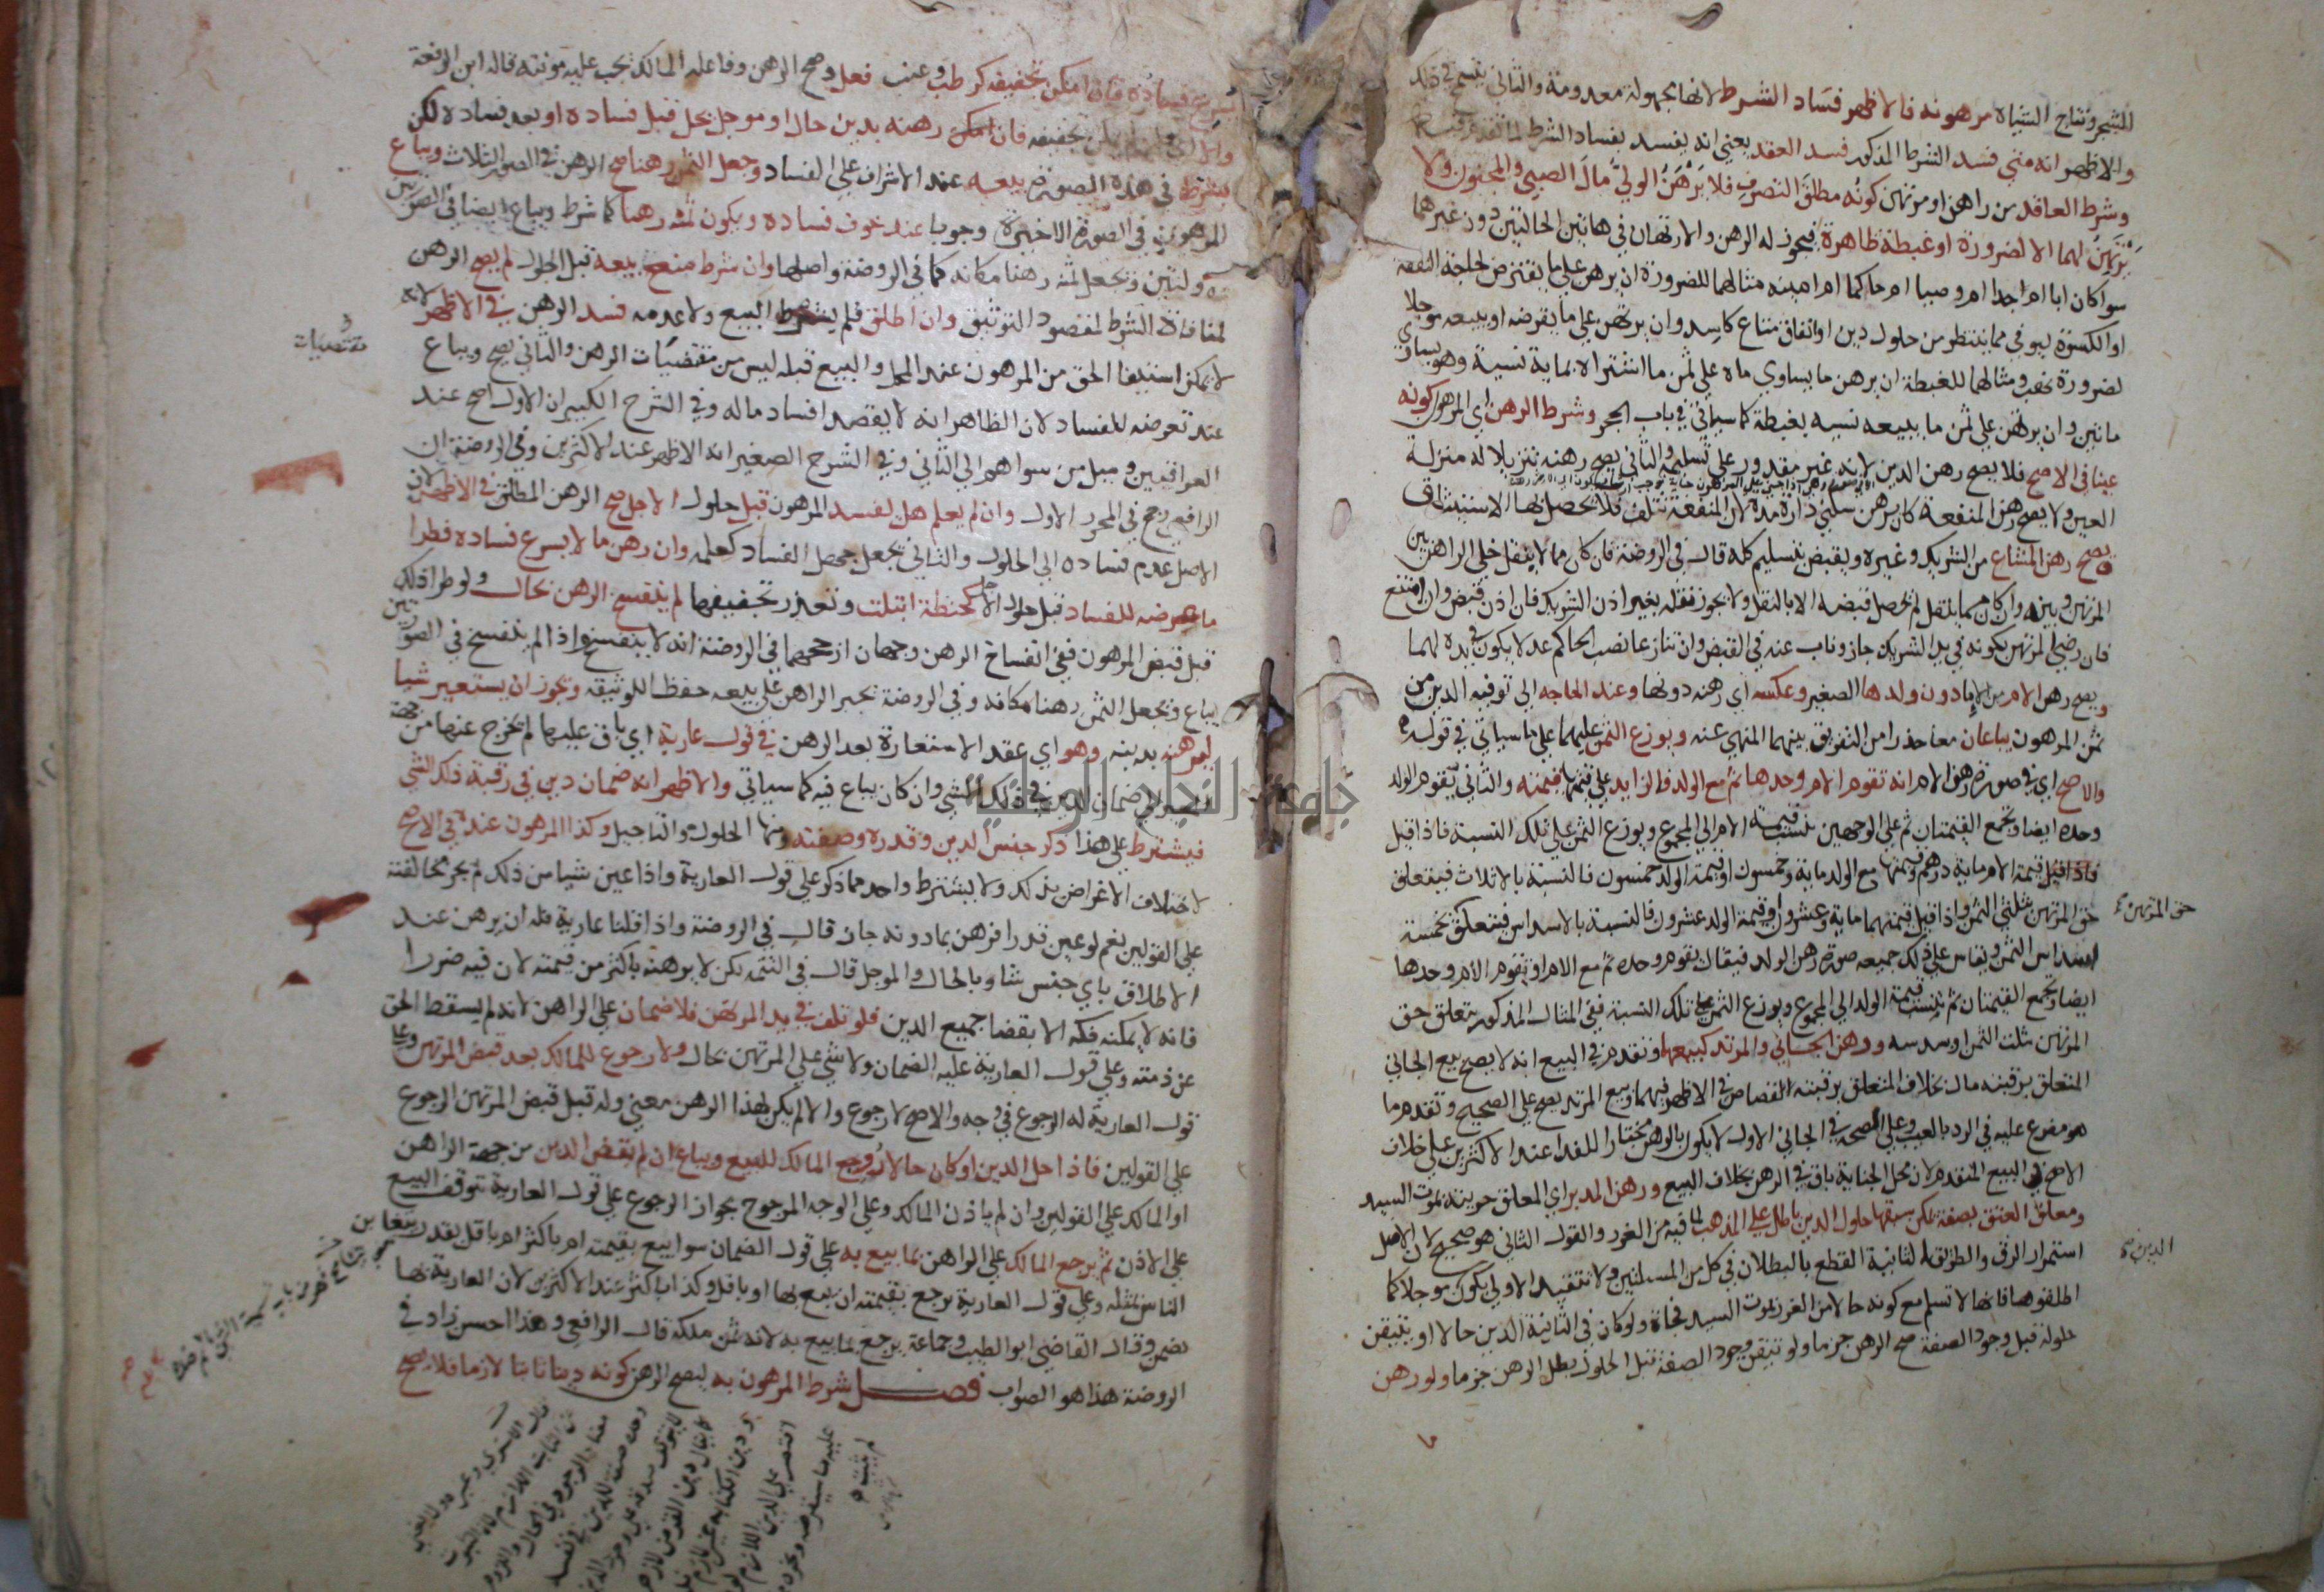 للشجر ونتاج الشياه مرهونه فالاظهر فساد الشرط لانها مجهولة معدومة والثاني يتسمح في ذلك
والاظهر انه متى فسد الشرط المذكور فسد العقد يعني انه يفسد بفساد الشرط لما تقدم
وشرط العاقد من راهن او مرتهن كونه مطلق التصرف فلا يرهن الولي مال الصبي والمجنون ولا
يرتهن لهما الا لضرورة او غبطة ظاهرة فيجوز له الرهن والارتهان في هاتين الحالتين دون غيرهما
سوا كان ابا ام جدا ام وصيا ام حاكما ام امينه مثالهما للضرورة ان يرهن على ما يقترض لحاجة النفقة
او الكسوة ليوفي مما ينتظر من حلول دين او انفاق متاع كاسد وان يرتهن على ما يقرضه او يبيعه موجلا
لضرورة نهب ومثالهما للغبطة ان يرهن ما يساوي ماه على ثمن ما اشترا لا بماية نسية وهو يساوي
ماتين وان يرتهن على ثمن ما يبيعه نسيه بغبطة كما سياتي في باب الحجر وشرط الرهن اي المرهون كونه
عينا في الاصح فلا يصح رهن الدين لانه غير مقدور على تسليمه والثاني يصح رهنه تنزيلا له منزلة
العين ولا يصح رهن المنفعة كان يرهن سكنى داره مدة لان المنفعة تتلف فلا يحصل بها الاستيثاق
ويصح رهن المشاع من الشريك وغيره ويقبض بتسليم كله قال في الروضة فان كان مما لا ينقل خلى الراهن بين
المرتهن وبينه وان كان مما ينقل لم يحصل قبضه الا بالنقل ولا يجوز نقله بغير اذن الشريك فان اذن قبض وان امتنع
فان رضي المرتهن بكونه في يد الشريك جاز وناب عنه في القبض وان تنازعا نصب الحاكم عدلا يكون في يده لهما
ويصح رهن الام من الاما دون ولدها الصغير وعكسه اي رهنه دونها وعند الحاجه الى توفيه الدين من
ثمن المرهون يباعان معا حذرا من التفريق بينهما المنهي عنه ويوزع الثمن عليهما على ما سياتي في قوله
والاصح اي في صورة رهن الام انه تقوم الام وحدها ثم مع الولد فالزايد على قيمتها قيمته والثاني يقوم الولد
وحده ايضا وتجمع القيمتان ثم على الوجهين ينسب قيمة الام الى المجموع ويوزع الثمن على تلك النسبة فاذا قيل
فاذا قيل قيمة الام ماية درهم وقيمتها مع الولد ماية وخمسون او قيمة الولد خمسون فالنسبة بالاثلاث فيتعلق
حق المرتهن بثلثي الثمن واذا قيل قيمتهما ماية وعشرون او قيمة الولد عشرون فالنسبة بالاسداس فيتعلق بخمسة
اسداس الثمن ويقاس على ذلك جميعه صورة رهن الولد فيقال يقوم وحده ثم مع الام او تقوم الام وحدها
ايضا وتجمع القيمتان ثم تنسب قيمة الولد الى المجموع ويوزع الثمن على تلك النسبة ففي المثال المذكور يتعلق حق
المرتهن بثلث الثمن او سدسه ورهن الجاني والمرتد كبيعهما وتقدم في البيع انه لا يصح بيع الجاني
المتعلق برقبته مال بخلاف المتعلق برقبته القصاص في الاظهر فيهما وبيع المرتد يصح على الصحيح وتقدم ما
هو مفرع عليه في الرد بالعيب وعلى الصحة في الجاني الاول لا يكون بالرهن مختارا للفدا عند الاكثرين على خلاف
الاصح في البيع المتقدم لان محل الجناية باق في الرهن بخلاف البيع ورهن المدبر اي المعلق حريته بموت السيد
ومعلق العتق بصفة يمكن سبقها حلول الدين باطل على المذهب لما فيه من الغرر والقول الثاني هو صحيح لان الاصل
استمرار الرق والطريق الثانية القطع بالبطلان في كل من المسلتين ولا تتقيد الاولى بكون موجلا كما
اطلقوها فانها لا تسلم مع كونه حالا من الغرر بموت السيد فجاة ولو كان في الثانية الدين حالا او يتيقن
حلوله قبل وجود الصفة صح الرهن جزما ولو تيقن وجود الصفة قبل الحلول بطل الرهن جزما ولو رهن
حق المرتهن
الدين صح
فساده فان امكن تجفيفه كرطب وعنب فعل وصح الرهن وفاعله المالك تجب عليه مونته قاله ابن الرفعة
تجفيفه فان رهنه بدين حال او موجل يحل قبل فساده او بعد فساده لكن
في هذه الصورة بيعه عند الاشراف على الفساد وجعل الثمن رهنا صح الرهن في الصور الثلاث ويباع
المرهون في الصورة الاخيرة وجوبا عند خوف فساده ويكون ثمنه رهنا كما شرط ويباع ايضا في الصورتين
ويجعل ثمنه رهنا مكانه كما في الروضة واصلها وان شرط منع بيعه قبل الحلول لم يصح الرهن
لمنافاة الشرط لمقصود التوثيق وان اطلق فلم يشترط البيع ولا عدمه فسد الرهن في الاظهر لانه
لا يمكن استيفا الحق من المرهون عند المحل والبيع قبله ليس من مقتضيات الرهن والثاني يصح ويباع
عند تعرضه للفساد لان الظاهر انه لا يقصد افساد ماله وفي الشرح الكبير ان الاول اصح عند
العراقيين وميل من سواهم الى الثاني وفي الشرح الصغير انه الاظهر عند الاكثرين وفي الروضة ان
الرافعي رجح في المحرر الاول وان لم يعلم هل يفسد المرهون قبل حلول الاجل صح الرهن المطلق في الاظهر لان
الاصل عدم فساده الى الحلول والثاني يجعل جهل الفساد كعلمه وان رهن ما لا يسرع فساده فطرا
ما عرضه للفساد قبل حلول الاجل كحنطة ابتلت وتعذر تجفيفها لم ينفسخ الرهن بحال ولو طرا ذلك
قبل قبض المرهون ففي انفساخ الرهن وجهان ارجحهما في الروضة انه لا ينفسخ واذا لم ينفسخ في الصورتين
يباع ويجعل الثمن رهنا مكانه وفي الروضة يجبر الراهن على بيعه حفظا للوثيقه ويجوز ان يستعير شيا
ليرهنه بدينه وهو اي عقد الاستعارة بعد الرهن في قول عارية اي باق عليها لم يخرج عنها من جهة
ضمان لدين في ذلك الشي وان كان يباع فيه كما سياتي والاظهر انه ضمان دين في رقبة ذلك الشي
فيشترط على هذا ذكر جنس الدين وقدره وصفته ومنها الحلول والتاجيل وكذا المرهون عنده في الاصح
لاختلاف الاغراض بذلك ولا يشترط واحد مما ذكر على قول العارية واذا عين شيا من ذلك لم يجز مخالفته
على القولين نعم لو عين قدرا فرهن بما دونه جاز قال في الروضة واذا قلنا عارية فله ان يرهن عند
الاطلاق باي جنس شا وبالحال والموجل قال في التتمه لكن لا يرهنه باكثر من قيمته لان فيه ضررا
فانه لا يمكنه فكه الا بقضا جميع الدين فلو تلف في يد المرتهن فلا ضمان على الراهن لانه لم يسقط الحق
عن ذمته وعلى قول العارية عليه الضمان ولا شي على المرتهن بحال ولا رجوع للمالك بعد قبض المرتهن وعلى
قول العارية له الرجوع في وجه والاصح لا رجوع والا لم يكن لهذا الرهن معنى وله قبل قبض المرتهن الرجوع
على القولين فاذا حل الدين او كان حالا روجع المالك للبيع ويباع ان لم يقض الدين من جهة الراهن
او المالك على القولين وان لم ياذن المالك وعلى الوجه المرجوح بجواز الرجوع على قول العارية تتوقف البيع
على الاذن ثم يرجع المالك على الراهن بما بيع به على قول الضمان سوا بيع بقيمته ام باكثر ام باقل بقدر يتغابن
الناس بمثله وعلى قول العارية يرجع بقيمته ان بيع بها او باقل وكذا باكثر عند الاكثرين لان العارية بها
تضمن وقال القاضي ابو الطيب وجماعة يرجع بما بيع به لانه ثمن ملكه قال الرافعي وهذا احسن زاد في
الروضة هذا هو الصواب فصل شرط المرهون به ليصح الرهن كونه دينا ثابتا لازما فلا يصح
مقتضيات
جامعة النجاح الوطنية